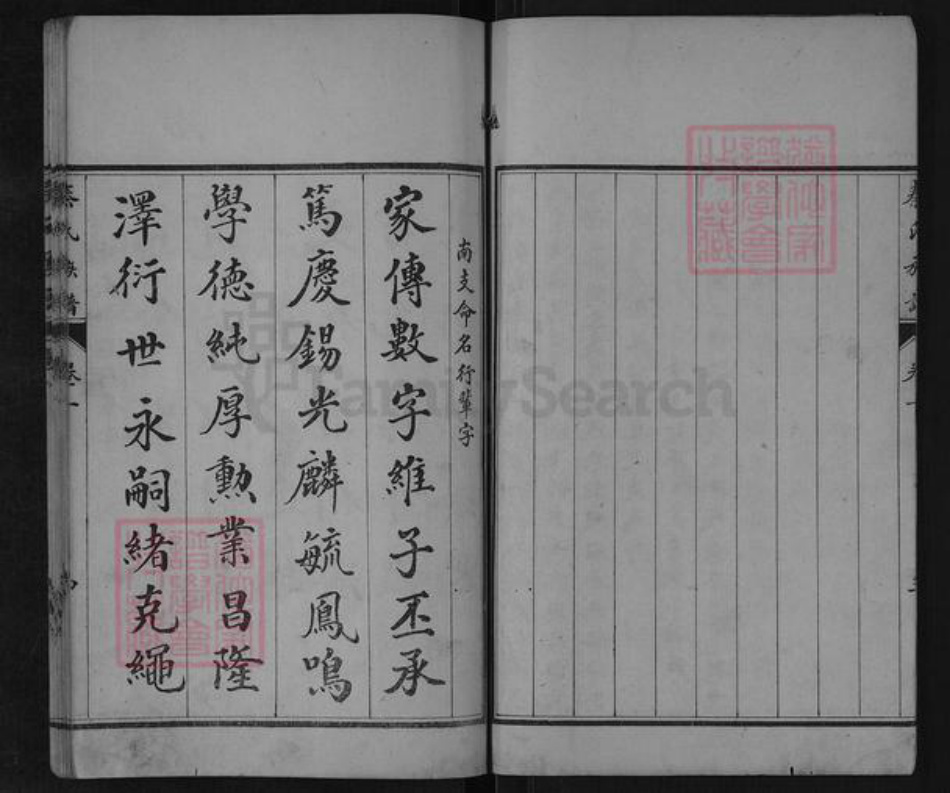 蔡氏族譜
卷一
南支命名行輩字
家傳數字維子丕承
篤慶錫光麟毓鳳鳴
學德純厚勲業昌隆
澤衍世永嗣緒克繩
蔡氏族譜
卷一
四
FamilySearch